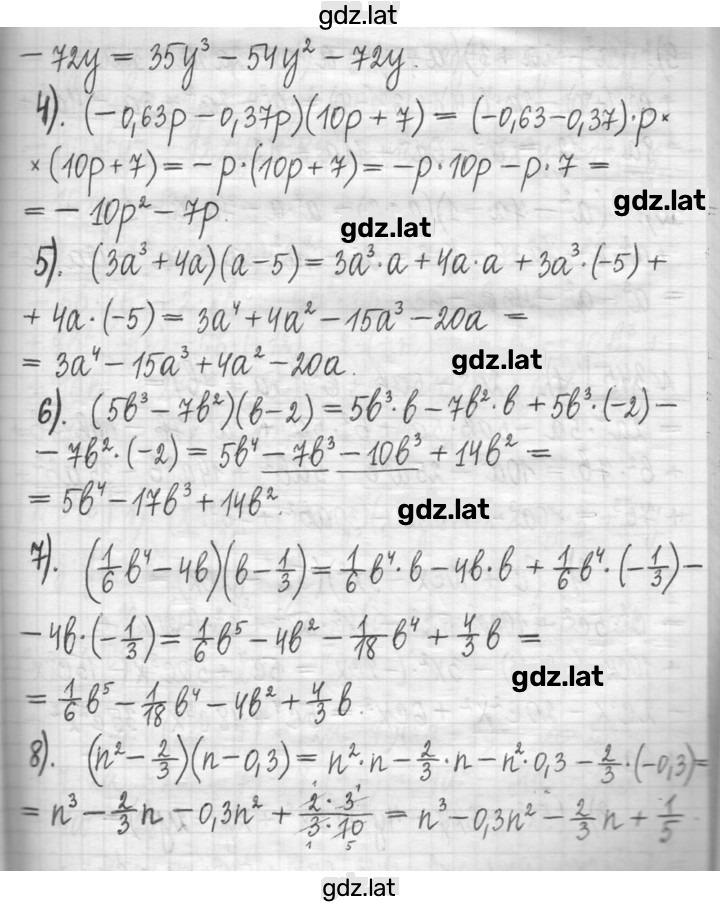 gdz.lat
− 72y = 35y³ − 54y² − 72y.
4). (−0,63p − 0,37p)(10p + 7) = (−0,63−0,37)·p×
×(10p+7) = −p·(10p+7) = −p·10p − p·7 =
= − 10p² − 7p.
gdz.lat
gdz.lat
5). (3a³ + 4a)(a − 5) = 3a³·a + 4a·a + 3a³·(−5) +
+ 4a·(−5) = 3a⁴ + 4a² − 15a³ − 20a =
= 3a⁴ − 15a³ + 4a² − 20a.
gdz.lat
6). (5b³ − 7b²)(b − 2) = 5b³·b − 7b²·b + 5b³·(−2) −
− 7b²·(−2) = 5b⁴ − 7b³ − 10b³ + 14b² =
= 5b⁴ − 17b³ + 14b².
gdz.lat
7). (1/6 b⁴ − 4b)(b − 1/3) = 1/6 b⁴·b − 4b·b + 1/6 b⁴·(−1/3) −
− 4b·(−1/3) = 1/6 b⁵ − 4b² − 1/18 b⁴ + 4/3 b =
gdz.lat
= 1/6 b⁵ − 1/18 b⁴ − 4b² + 4/3 b.
8). (n² − 2/3)(n − 0,3) = n²·n − 2/3·n − n²·0,3 − 2/3·(−0,3) =
= n³ − 2/3 n − 0,3n² + 2·3¹/3·10 = n³ − 0,3n² − 2/3 n + 1/5
1 5
gdz.lat